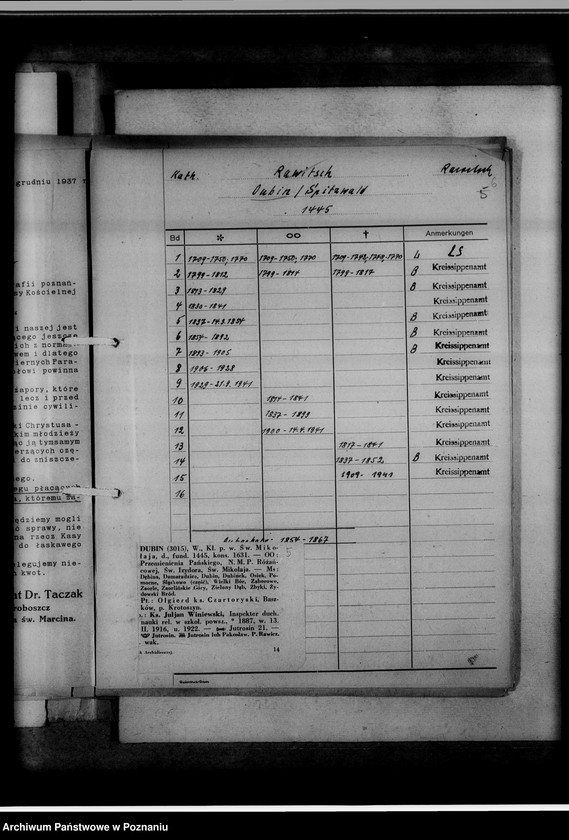 grudniu 1937 r
afii poznań-
wy Kościelnej
i naszej jest
ącego jeszcze
wem i dlatego
iernych Para-
kowi powinna
zapory, które
lecz i przed
zinie cywili-
ki Chrystusa -
kim młodzieży
ąc ją tymsamym
erzących czę-
do zniszcze-
ego.
ęgu płacących
a, któremu za-
będziemy mogli
ć sprawy, nie
na rzecz Kasy
do łaskawego
elegujemy nie-
a kwot.
at Dr. Taczak
roboszcz
a św. Marcina.
Kath. Rawitsch
Dubin / Spitzwald
1445
Bd * oo † Anmerkungen
1 1709-1750, 1770 1709-1750, 1770 LS
2 1799-1812, 1799-1817 1799-1817 B Kreissippenamt
3 1813-1829 B Kreissippenamt
4 1830-1841 Kreissippenamt
5 1837-14.3.1854 B Kreissippenamt
6 1854-1892 B Kreissippenamt
7 1893-1905 B Kreissippenamt
8 1906-1928 Kreissippenamt
9 1929-21.9.1941 Kreissippenamt
10 1818-1841 Kreissippenamt
11 1837-1899 Kreissippenamt
12 1900-14.4.1941 Kreissippenamt
13 1817-1841 Kreissippenamt
14 1837-1852, B Kreissippenamt
15 1909-1941 Kreissippenamt
16
1854-1867
DUBIN (3015), W., Kl. p. w. Św. Miko-
łaja, d., fund. 1445, kons. 1631. — OO:
Przemienienia Pańskiego, N. M. P. Różań-
cowej, Św. Izydora, Św. Mikołaja. — Mc:
Dębina, Domaradzice, Dubin, Dubinek, Osiek, Po-
morze, Słupkowo (część), Wielki Bór, Zaborowo,
Zaorle, Zawilskie Góry, Zielony Dąb, Zbyki, Ży-
dowski Bród.
Pt.: Olgierd ks. Czartoryski, Basz-
ków, p. Krotoszyn.
.: Ks. Juljan Winiewski, Inspektor duch.
nauki rel. w szkol. powsz., * 1887, w. 13.
II. 1916, u. 1922. — Jutrosin 21. —
Jutrosin. Jutrosin lub Pakosław. P. Rawicz.
wak.
14